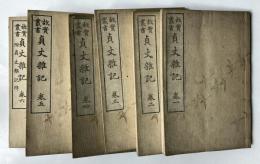 故實叢書 貞丈雜記 卷一
故實叢書 貞丈雜記 卷二
故實叢書 貞丈雜記 卷三
故實叢書 貞丈雜記 卷四
故實叢書 貞丈雜記 卷五
故實叢書 貞丈雜記 卷六